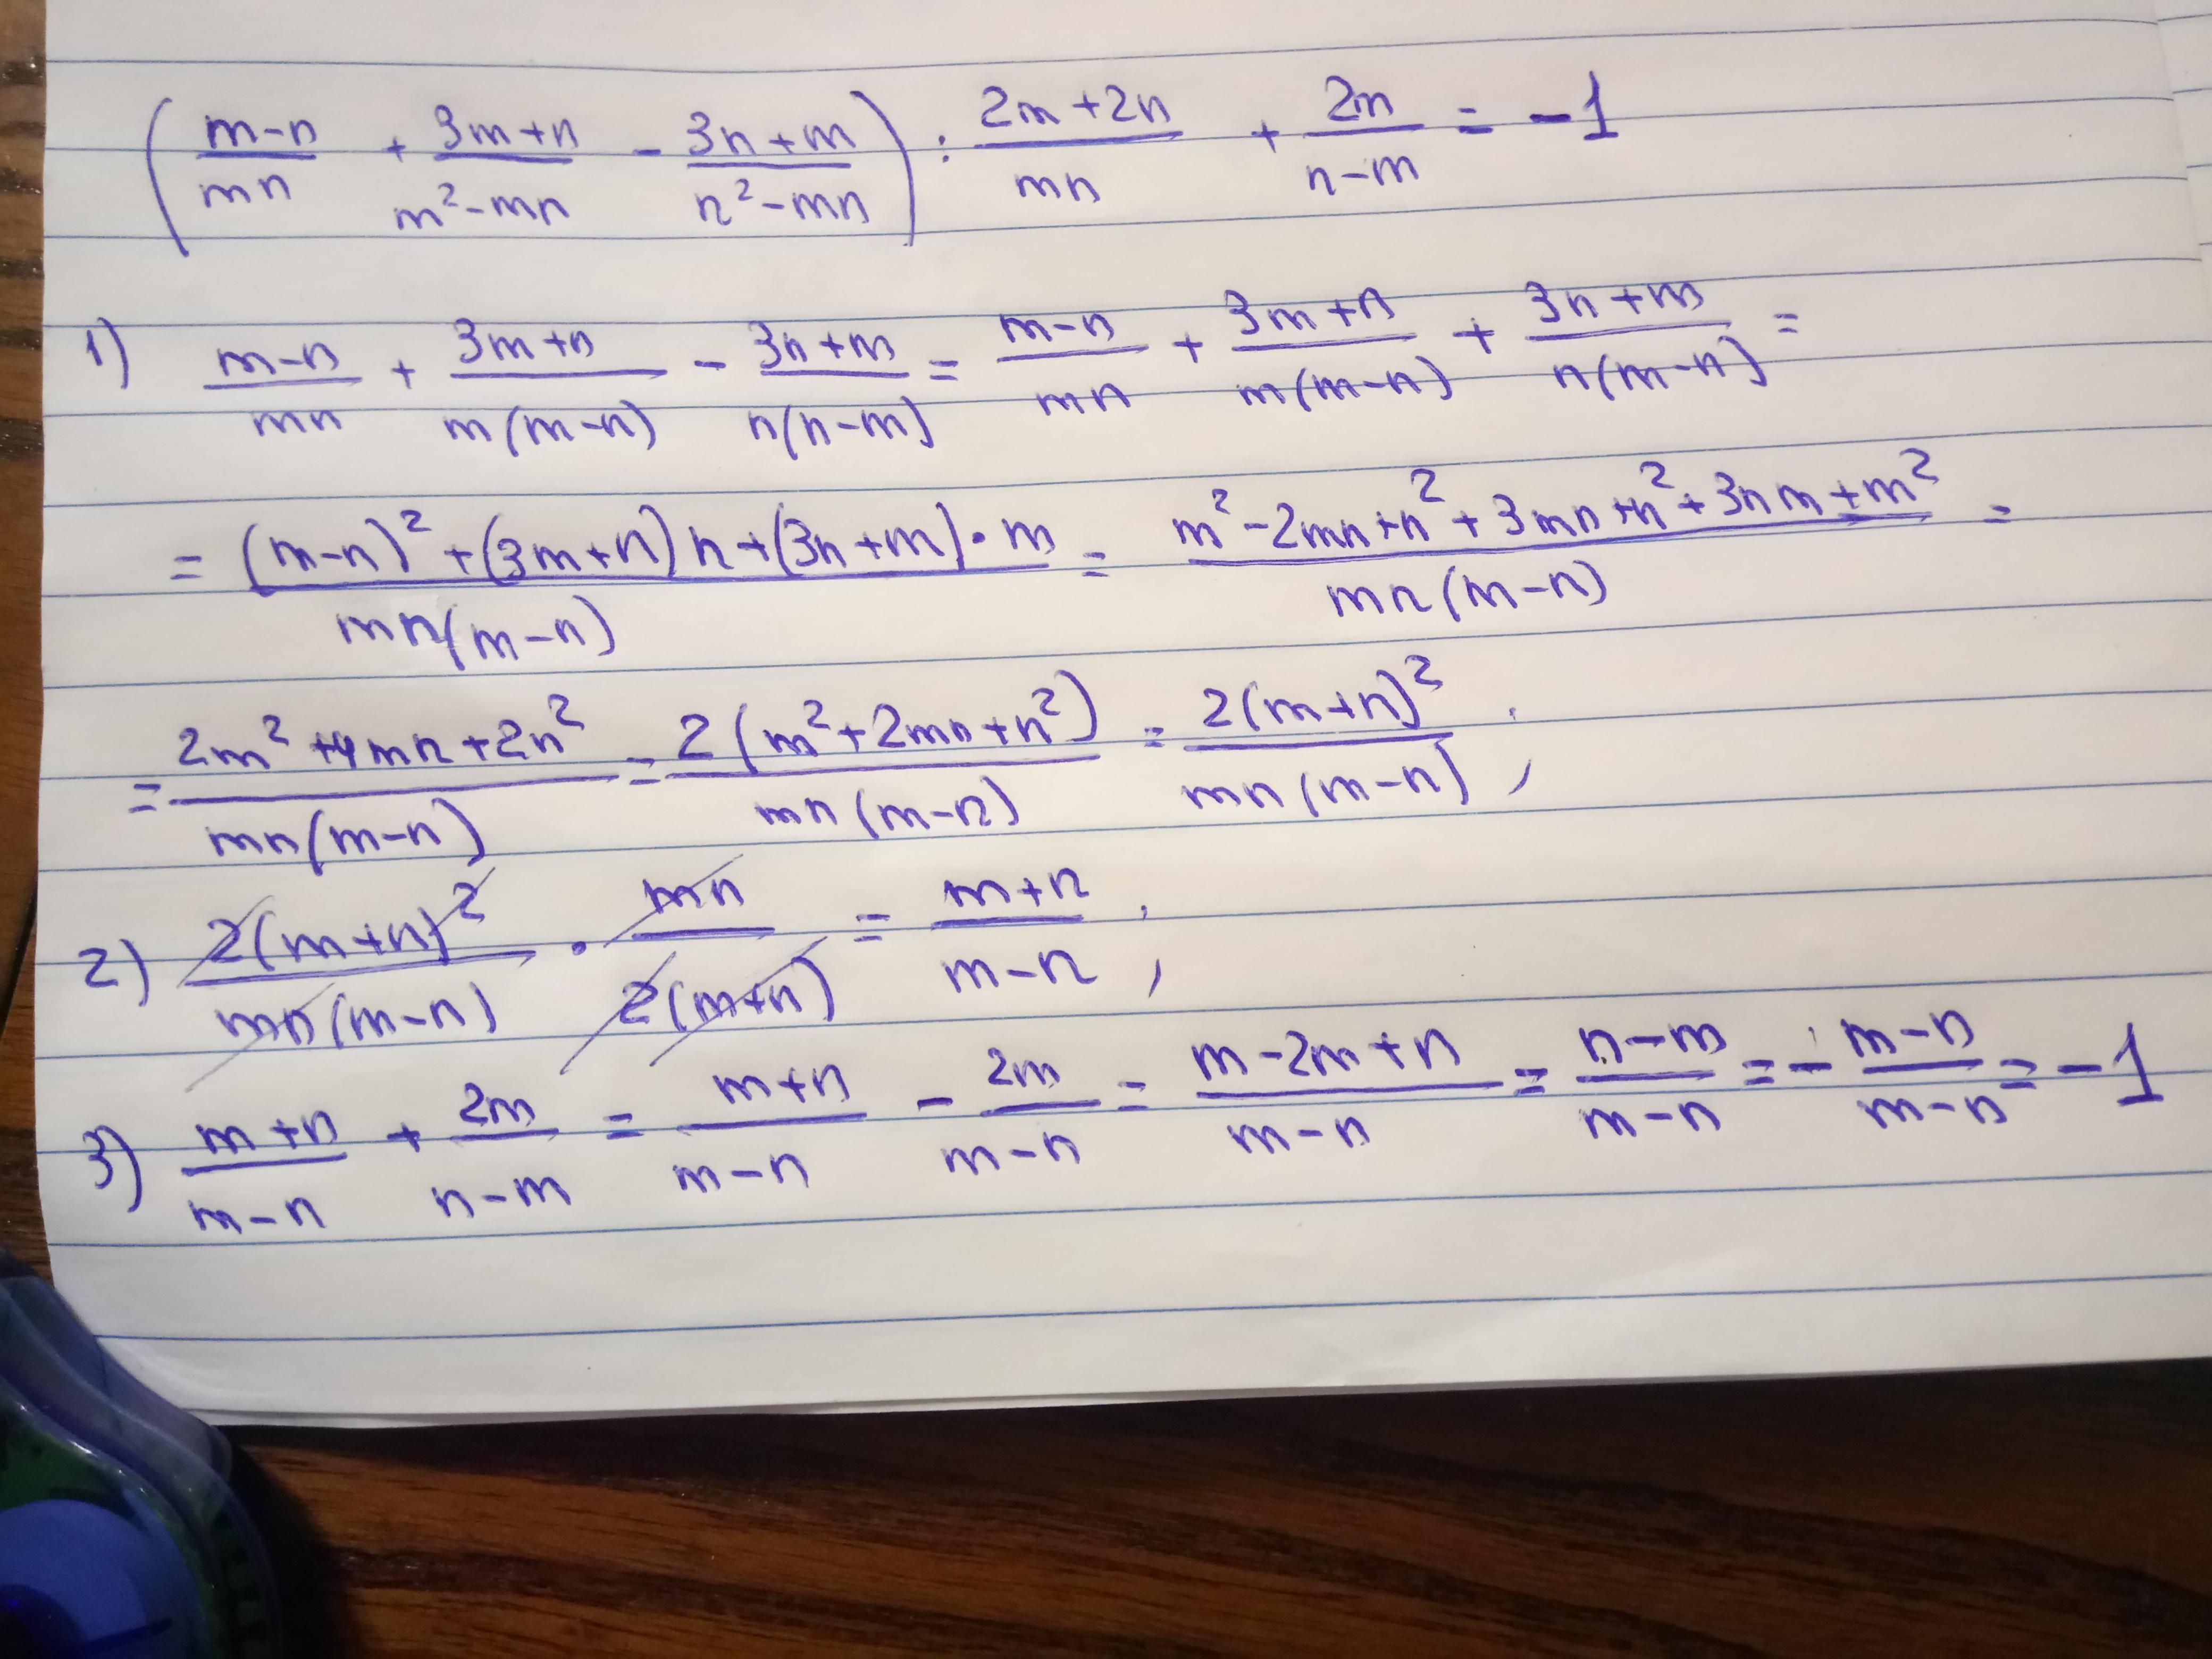 (m-n/mn + 3m+n/m²-mn - 3n+m/n²-mn) : 2m+2n/mn + 2m/n-m = -1
1) m-n/mn + 3m+n/m(m-n) - 3n+m/n(n-m) = m-n/mn + 3m+n/m(m-n) + 3n+m/n(m-n) =
= (m-n)²+(3m+n)n+(3n+m)·m/mn(m-n) = m²-2mn+n²+3mn+n²+3nm+m²/mn(m-n) =
= 2m²+4mn+2n²/mn(m-n) = 2(m²+2mn+n²)/mn(m-n) = 2(m+n)²/mn(m-n) ;
2) 2(m+n)²/mn(m-n) · mn/2(m+n) = m+n/m-n ;
3) m+n/m-n + 2m/n-m = m+n/m-n - 2m/m-n = m-2m+n/m-n = n-m/m-n = - m-n/m-n = -1